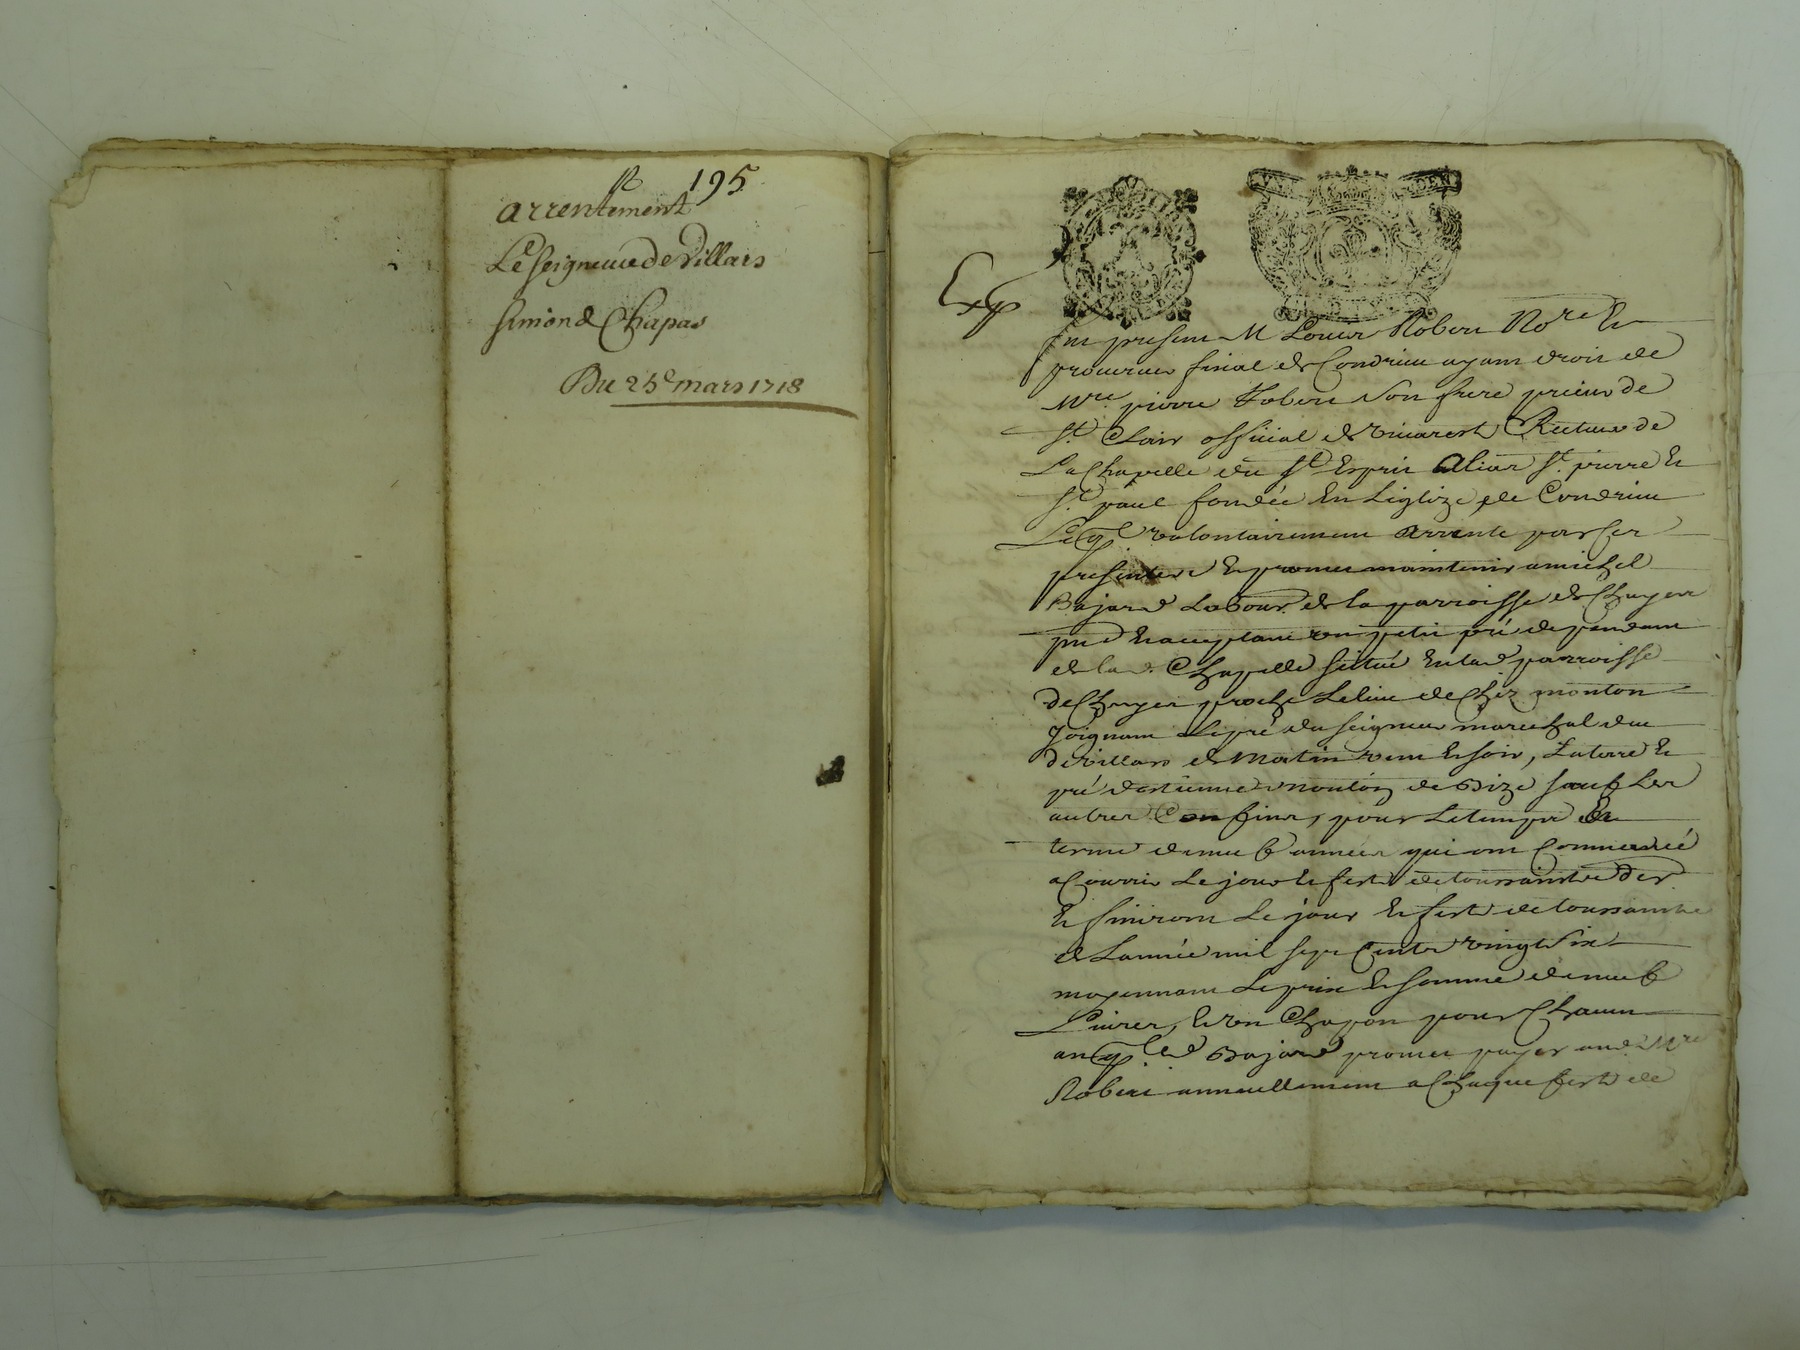 195
arrentement
Le seigneur de Villars
simond Chapas
Du 25e mars 1718
Exp
fut present Mr Louis Robert Nore Et
procureur fiscal de Condrieu ayant droit de
Mre pierre Robert son frere prieur de
St. Clair official de vivarest Recteur de
La Chapelle du St Esprit Alias St. pierre Et
St. paul fondée En Leglize de Condrieu
Leql volontairement arrente par ses
presentes Et promet maintenir a michel
Bajard Labour. de la parroisse de Chuyer
pnt Et acceptant un petit pré dependant
de lad. Chapelle scitué En lad parroisse
de Chuyer proche Le lieu de Chez monton
Joignant Le pré du seigneur mareschal duc
de villars de Matin vent Et soir, La terre Et
pré destienne monton de Bize sauf Les
autres Confins, pour Le temps Et
terme de neuf années qui ont Commencé
a Courrir Le jour Et feste de toussaints der
Et finiront Le jour Et feste de toussaints
de Lannée mil sept Cents vingt six
moyennant Le prix Et somme de neuf
Livres, Et un Chapon pour Chacun
an ql led Bajard promet payer aud. Mre
Robert annuellement a Chaque feste de